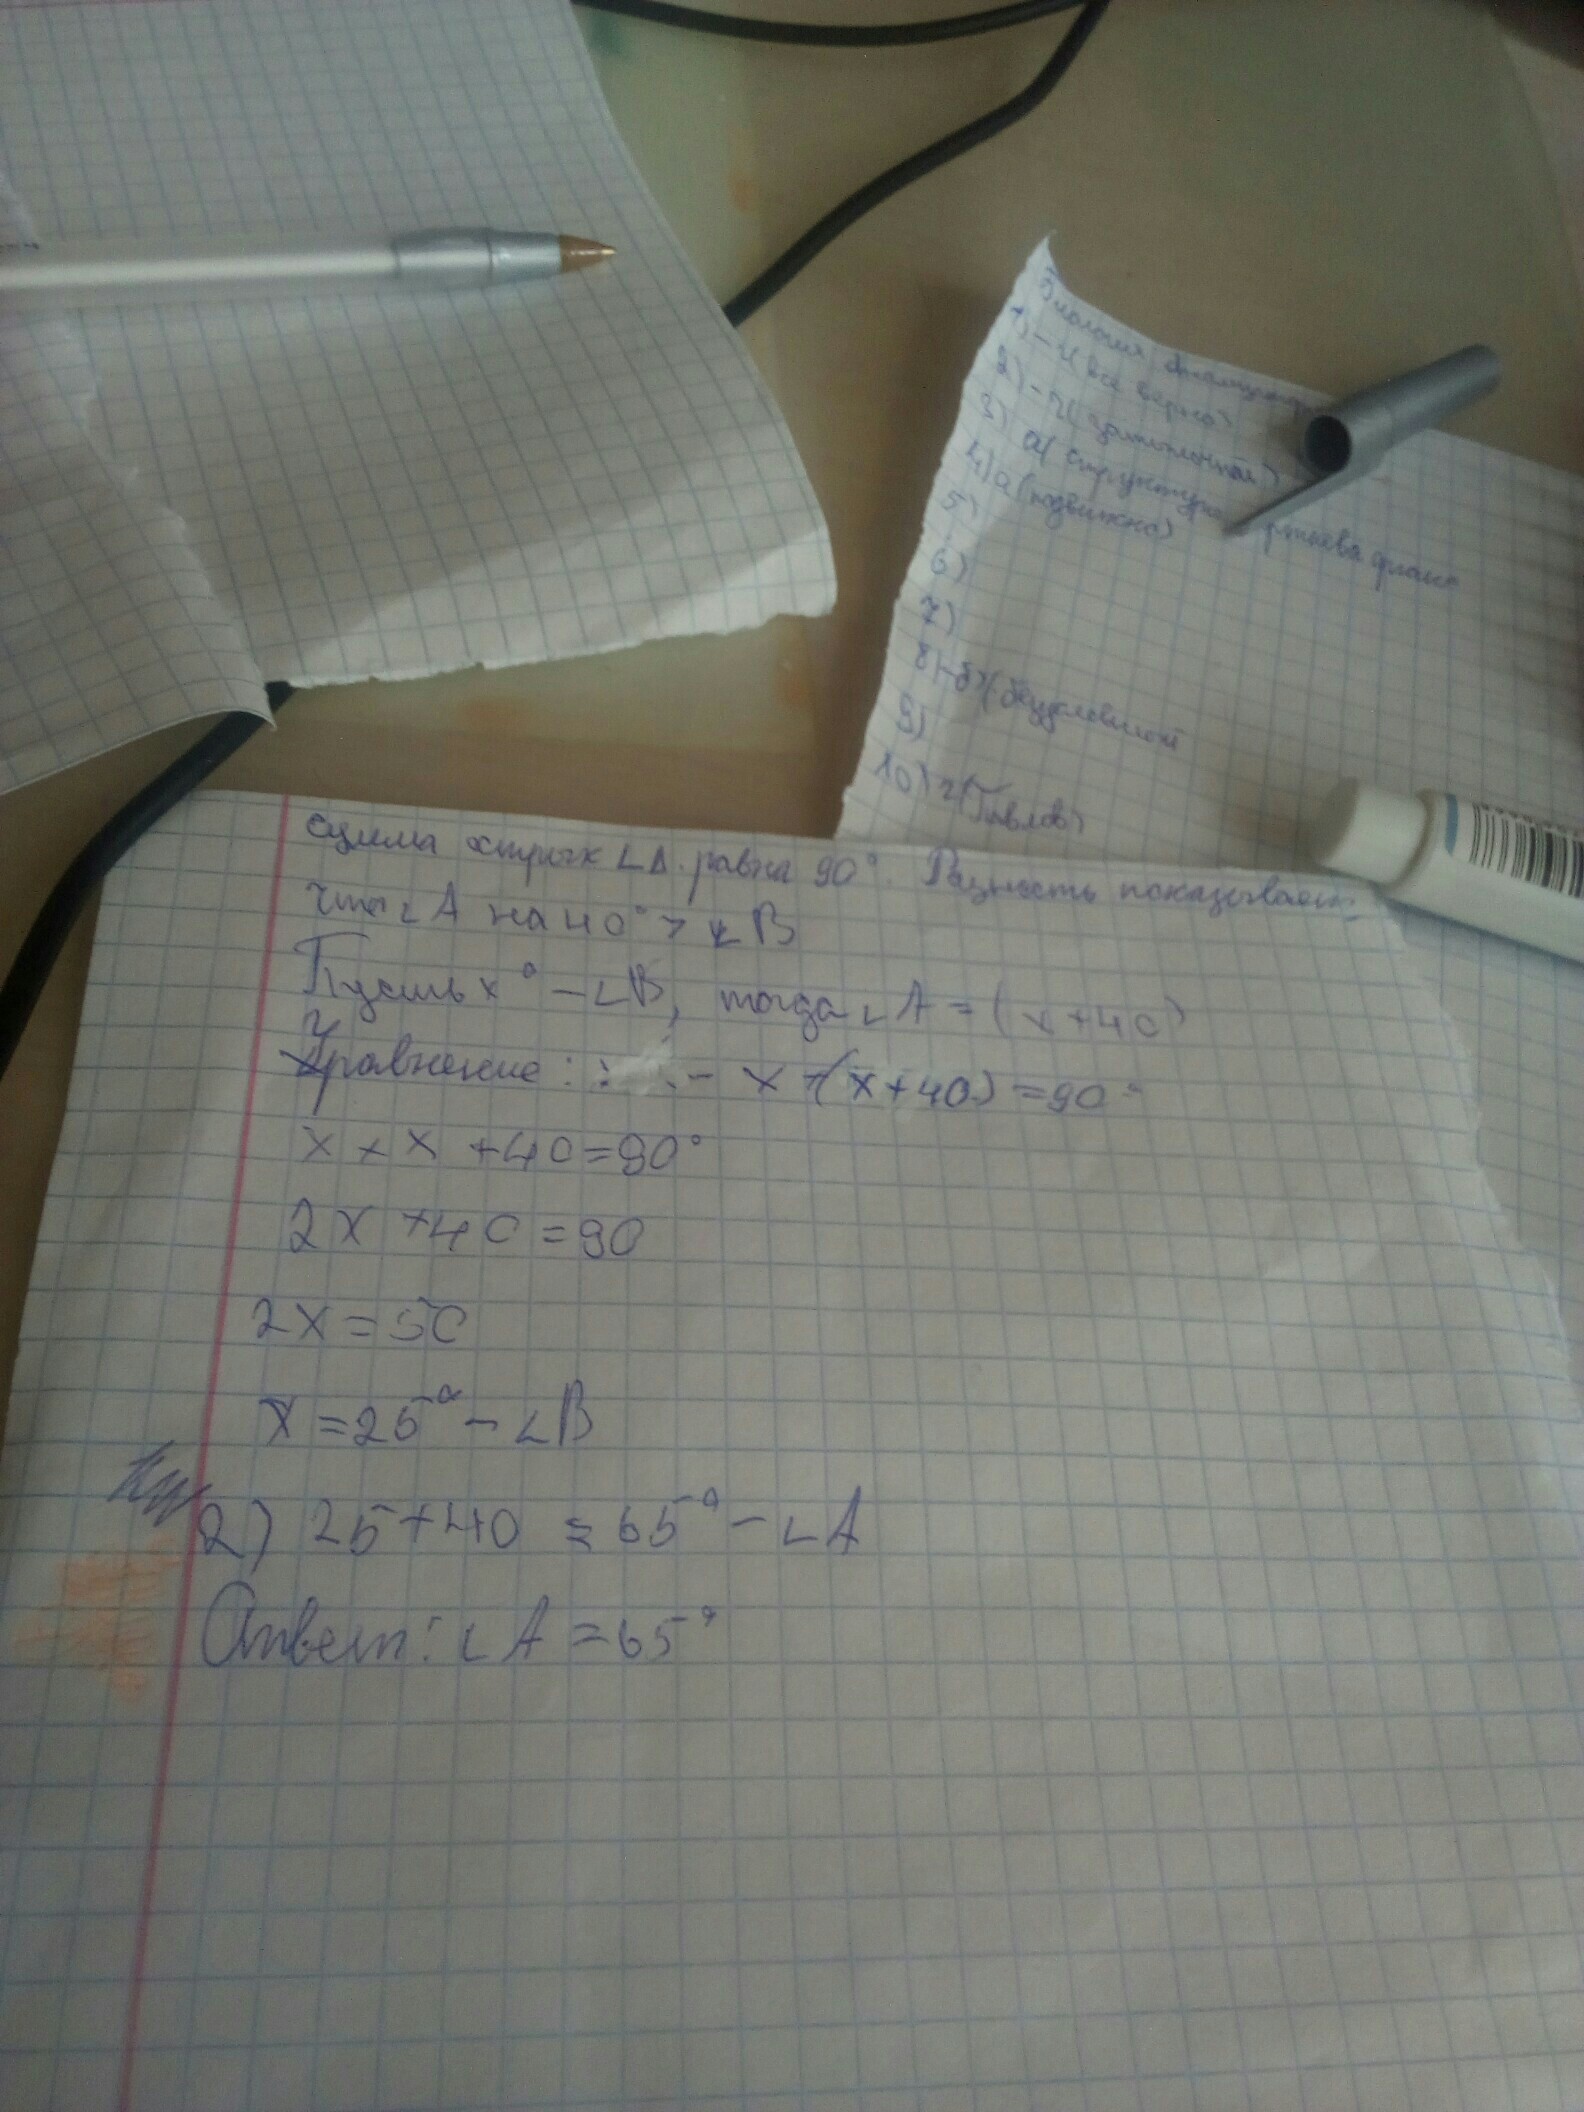 Биология
1) - г(все верно)
2) - г(
3) а(структура
4) а(подвижно)
5)
6)
7)
8) - б)(безусловный
9)
10) г(Павлов)
сумма острых ∠Δ. равна 90°. Разность показывает
что ∠A на 40° > ∠B
Пусть x° - ∠B, тогда ∠A = (x+40)
Уравнение: x +(x+40) =90°
x + x +40=90°
2x +40=90
2x=50
x=25° - ∠B
2) 25+40 = 65° - ∠A
Ответ: ∠A =65°